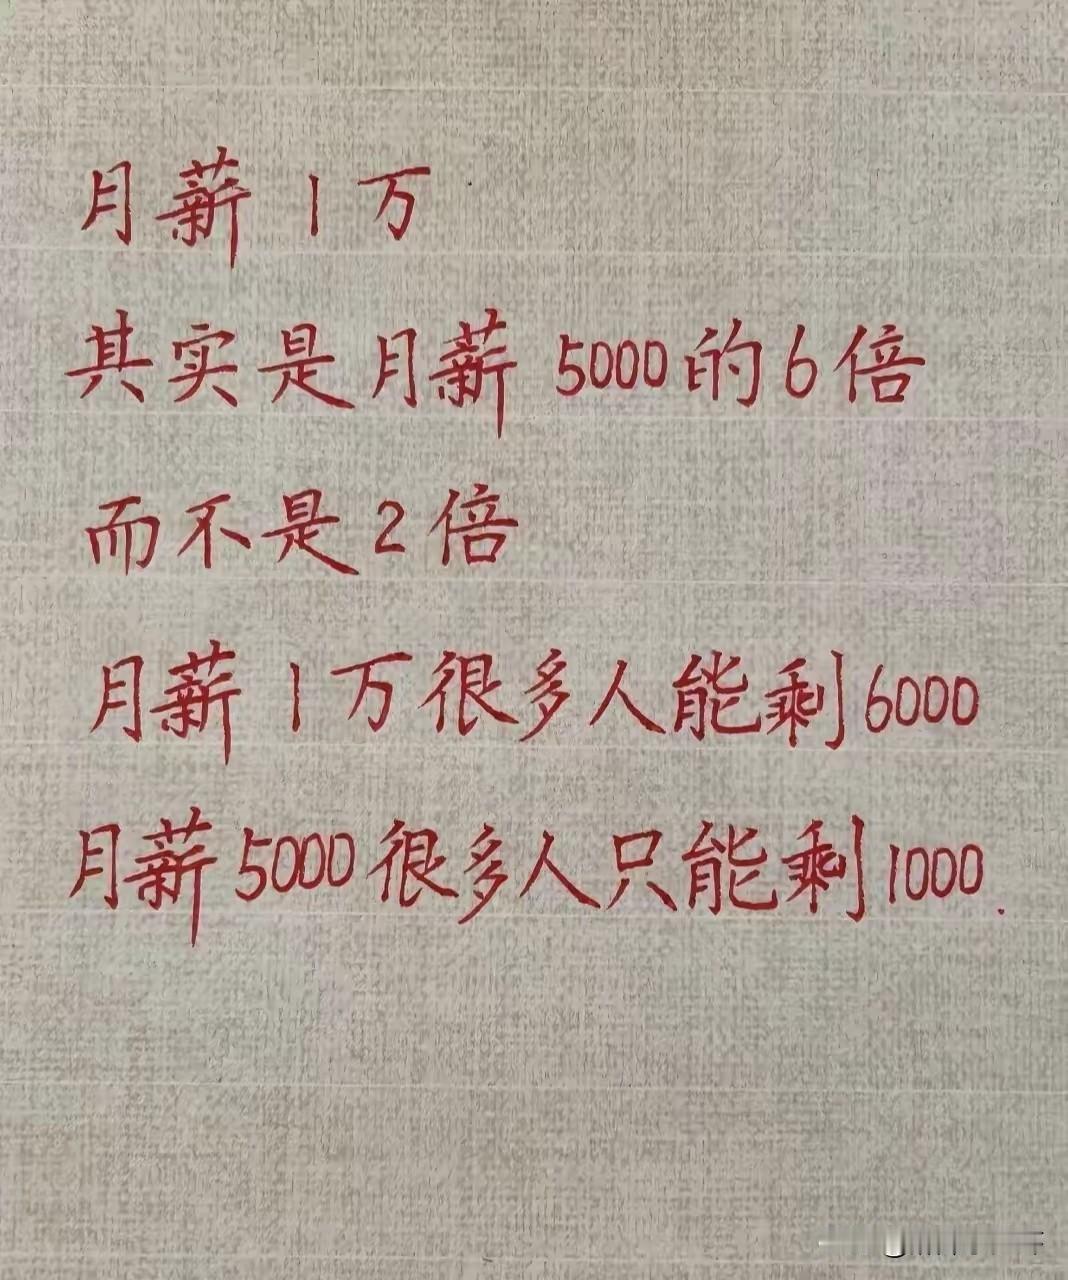 月薪1万
其实是月薪5000的6倍
而不是2倍
月薪1万很多人能剩6000
月薪5000很多人只能剩1000.